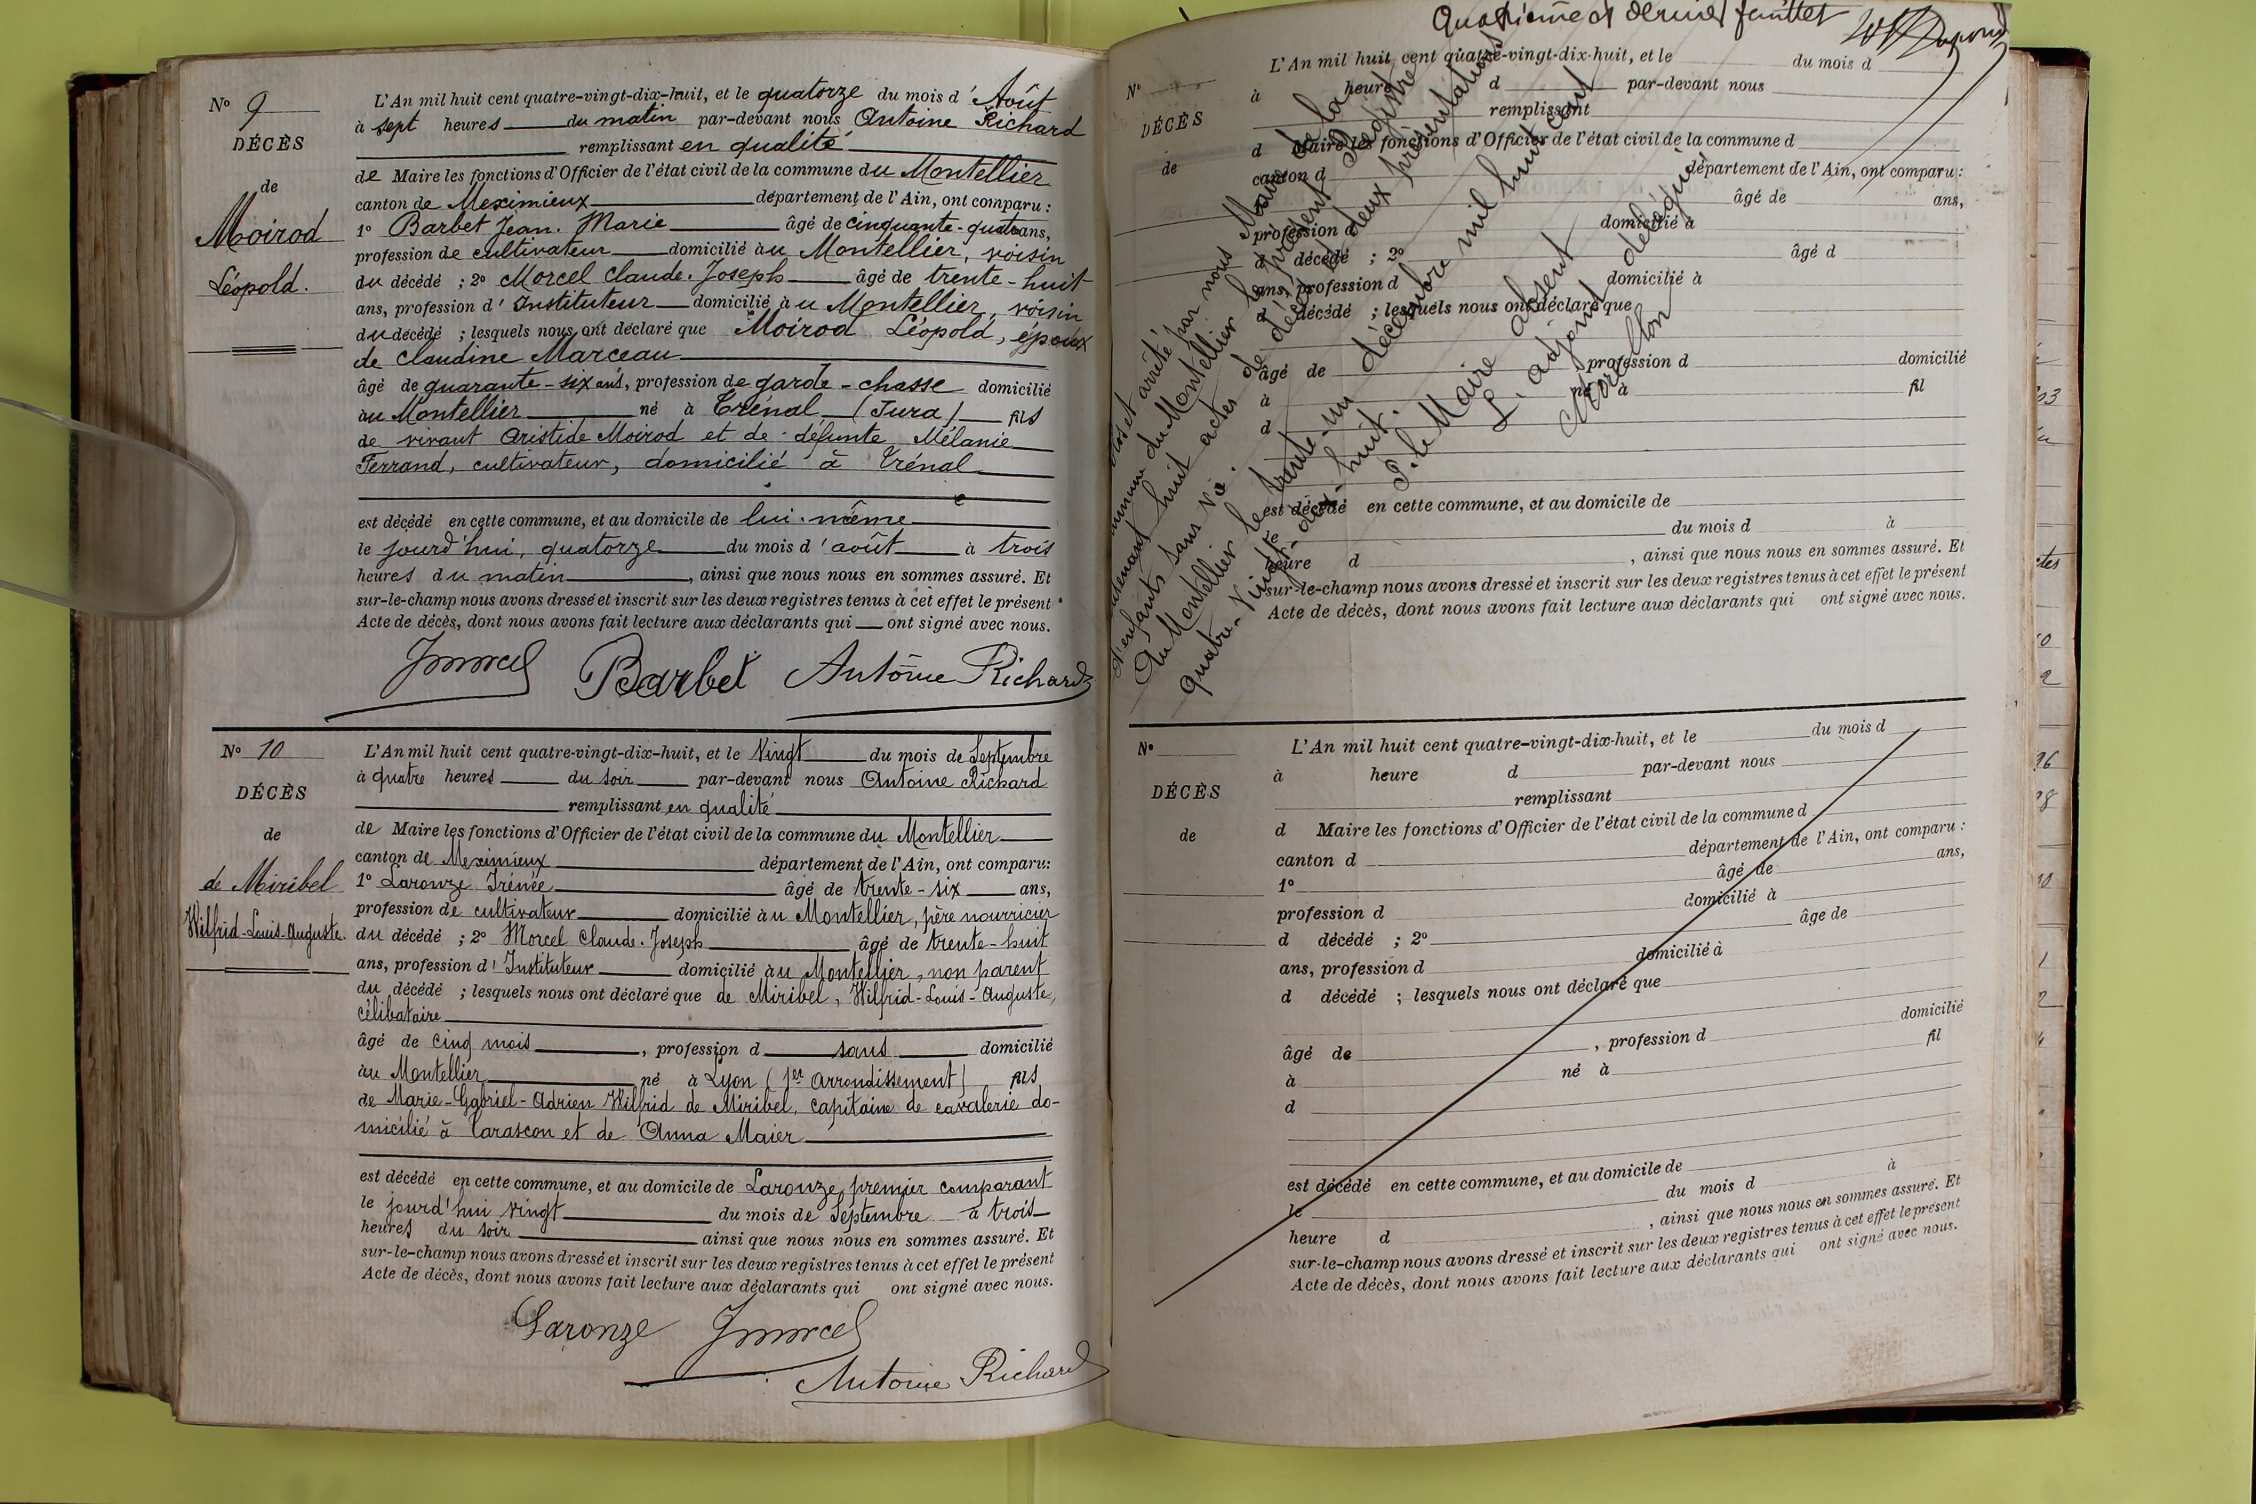 N° 9
DÉCÈS
de
Moirod
Léopold.
L'An mil huit cent quatre-vingt-dix-huit, et le quatorze du mois d'Août
à sept heures du matin par-devant nous Antoine Richard
remplissant en qualité
de Maire les fonctions d'Officier de l'état civil de la commune du Montellier
canton de Meximieux département de l'Ain, ont comparu :
1° Barbet Jean. Marie âgé de cinquante-quatre ans,
profession de cultivateur domicilié au Montellier, voisin
du décédé ; 2° Morcel Claude. Joseph âgé de trente-huit
ans, profession d'Instituteur domicilié au Montellier, voisin
du décédé ; lesquels nous ont déclaré que Moirod Léopold, époux
de Claudine Marceau
âgé de quarante-six ans, profession de garde-chasse domicilié
au Montellier né à Trénal (Jura) fils
de vivant Aristide Moirod et de défunte Mélanie
Ferrand, cultivateur, domicilié à Trénal
est décédé en cette commune, et au domicile de lui-même
le jourd'hui, quatorze du mois d'août à trois
heures du matin, ainsi que nous nous en sommes assuré. Et
sur-le-champ nous avons dressé et inscrit sur les deux registres tenus à cet effet le présent
Acte de décès, dont nous avons fait lecture aux déclarants qui ont signé avec nous.
Jmorcel Barbet Antoine Richard
N° 10
DÉCÈS
de
de Miribel
Wilfrid-Louis-Auguste.
L'An mil huit cent quatre-vingt-dix-huit, et le Vingt du mois de Septembre
à quatre heures du soir par-devant nous Antoine Richard
remplissant en qualité
de Maire les fonctions d'Officier de l'état civil de la commune du Montellier
canton de Meximieux département de l'Ain, ont comparu:
1° Laronze Irénée âgé de trente-six ans,
profession de cultivateur domicilié au Montellier, père nourricier
du décédé ; 2° Morcel Claude. Joseph âgé de trente-huit
ans, profession d'Instituteur domicilié au Montellier, non parent
du décédé ; lesquels nous ont déclaré que de Miribel, Wilfrid-Louis-Auguste,
célibataire
âgé de cinq mois, profession d sans domicilié
au Montellier né à Lyon (1er arrondissement) fils
de Marie-Gabriel-Adrien Wilfrid de Miribel, capitaine de cavalerie do-
micilié à Tarascon et de Anna Maier
est décédé en cette commune, et au domicile de Laronze, premier comparant
le jourd'hui vingt du mois de Septembre à trois
heures du soir ainsi que nous nous en sommes assuré. Et
sur-le-champ nous avons dressé et inscrit sur les deux registres tenus à cet effet le présent
Acte de décès, dont nous avons fait lecture aux déclarants qui ont signé avec nous.
Laronze Jmorcel
Antoine Richard
Quatrième et dernier feuillet
N°
DÉCÈS
de
L'An mil huit cent quatre-vingt-dix-huit, et le du mois d
à heure d par-devant nous
remplissant
d Maire les fonctions d'Officier de l'état civil de la commune d
canton d département de l'Ain, ont comparu :
âgé de ans,
profession d domicilié à
d décédé ; 2° âgé d
ans, profession d domicilié à
d décédé ; lesquels nous ont déclaré que
âgé de profession d domicilié
à né à fil
d
est décédé en cette commune, et au domicile de
le du mois d à
heure d , ainsi que nous nous en sommes assuré. Et
sur-le-champ nous avons dressé et inscrit sur les deux registres tenus à cet effet le présent
Acte de décès, dont nous avons fait lecture aux déclarants qui ont signé avec nous.
et arrêté par nous Maire de la
commune du Montellier le présent Registre
contenant huit actes de décès et deux présentations
d'enfants sans vie.
Au Montellier le trente-un décembre mil huit cent
quatre-vingt-dix-huit.
P. le Maire absent
L'adjoint délégué
N°
DÉCÈS
de
L'An mil huit cent quatre-vingt-dix-huit, et le du mois d
à heure d par-devant nous
remplissant
d Maire les fonctions d'Officier de l'état civil de la commune d
canton d département de l'Ain, ont comparu :
1° âgé de ans,
profession d domicilié à
d décédé ; 2° âge de
ans, profession d domicilié à
d décédé ; lesquels nous ont déclaré que
âgé de , profession d domicilié
à né à fil
d
est décédé en cette commune, et au domicile de
le du mois d à
heure d , ainsi que nous nous en sommes assuré. Et
sur-le-champ nous avons dressé et inscrit sur les deux registres tenus à cet effet le présent
Acte de décès, dont nous avons fait lecture aux déclarants qui ont signé avec nous.